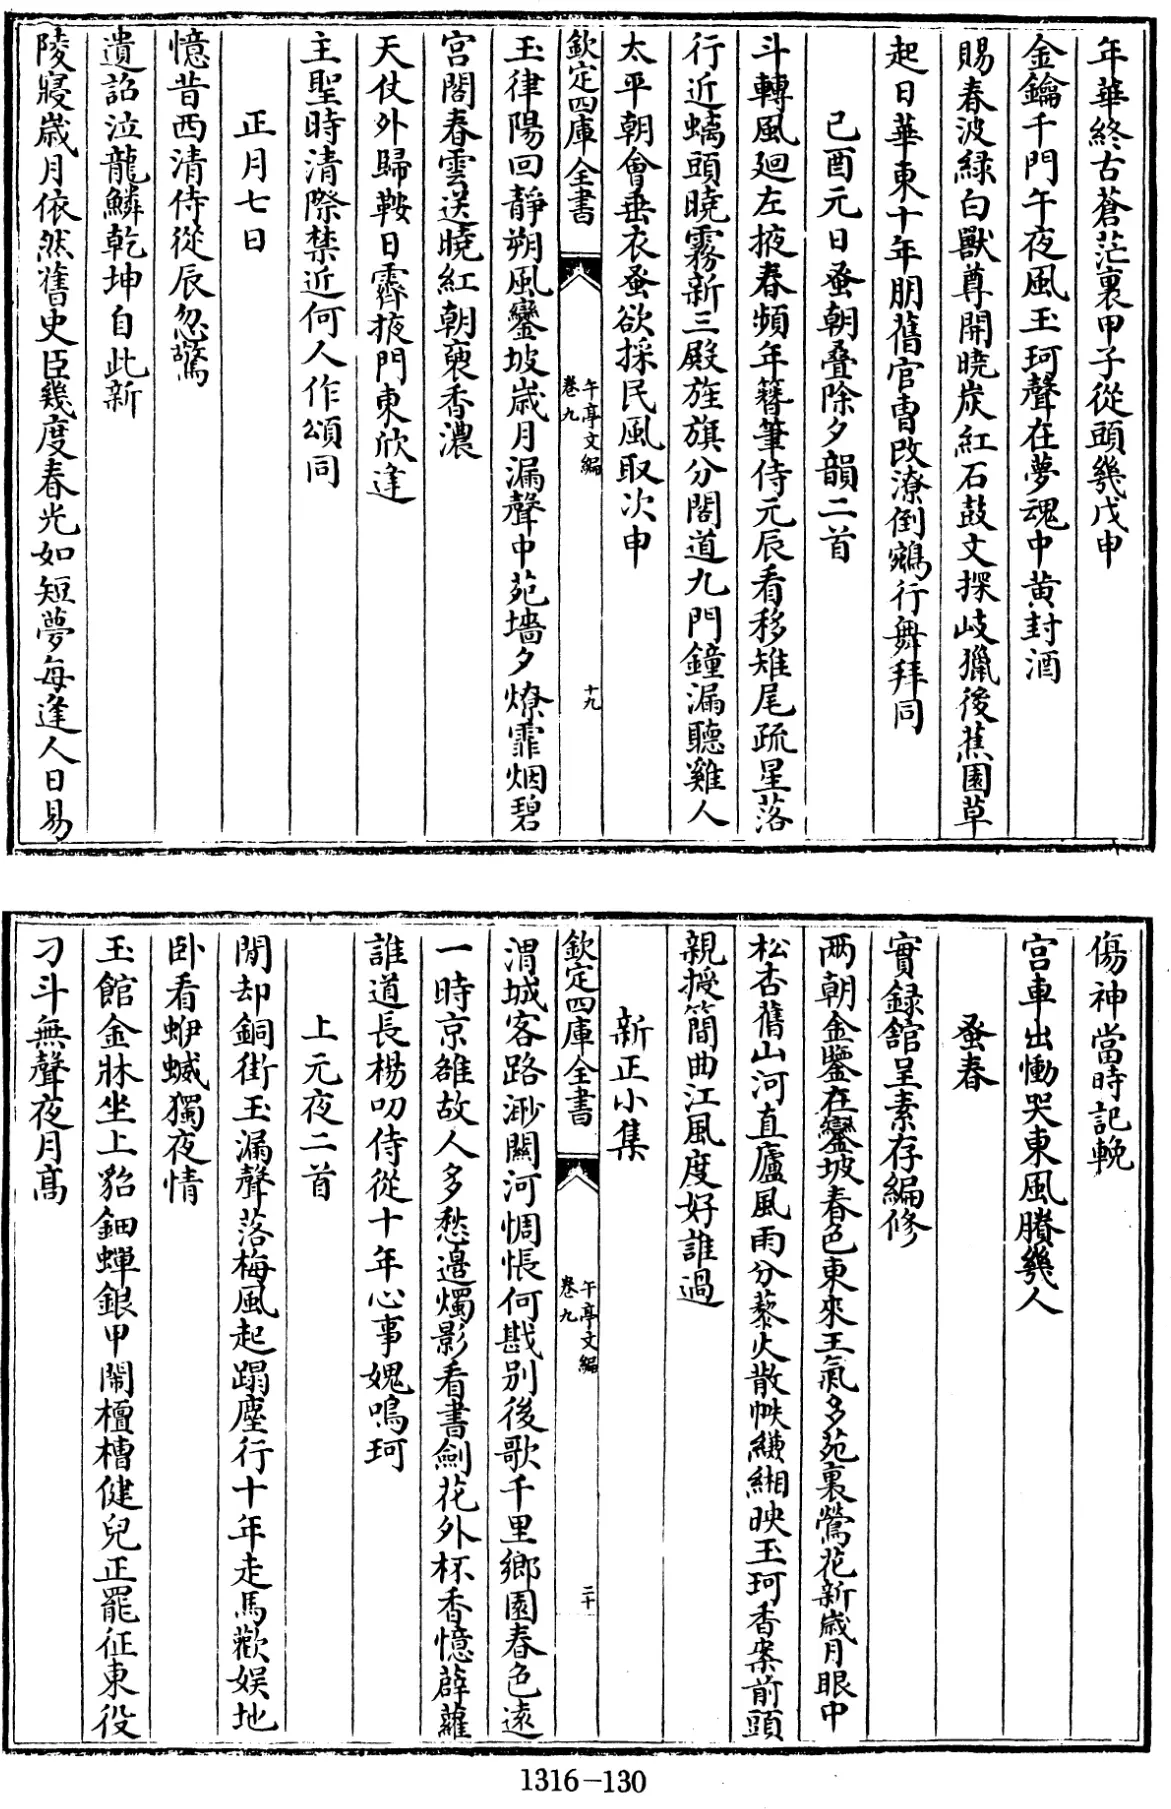 年華終古蒼茫裏甲子從頭幾戊申
金鑰千門午夜風玉珂聲在夢魂中黄封酒
賜春波緑白獸尊開曉炭紅石鼓文探岐獵後蕉園草
起日華東十年朋舊官曹改潦倒鵷行舞拜同
己酉元日蚤朝疊除夕韻二首
斗轉風廻左掖春頻年簪筆侍元辰看移雉尾疏星落
行近螭頭曉霧新三殿旌旗分閣道九門鐘漏聽雞人
太平朝會垂衣蚤欲採民風取次申
欽定四庫全書
午亭文編
卷九
十九
玉律陽回靜朔風鑾坡嵗月漏聲中苑墻夕燎霏烟碧
宫閣春雲送曉紅朝褏香濃
天仗外歸鞍日霽掖門東欣逢
主聖時清際禁近何人作頌同
正月七日
憶昔西清侍從辰忽驚
遺詔泣龍鱗乾坤自此新
陵寢嵗月依然舊史臣幾度春光如短夢每逢人日易
傷神當時記輓
宫車出慟哭東風賸幾人
蚤春
實録館呈素存編修
兩朝金鑒在鑾坡春色東來王氣多苑裏鶯花新嵗月眼中
松杏舊山河直廬風雨分藜火散帙縑緗映玉珂香案前頭
親授簡曲江風度好誰過
新正小集
欽定四庫全書
午亭文編
卷九
二十
渭城客路渺關河惆悵何戡别後歌千里鄉園春色遠
一時京雒故人多愁邉燭影看書劍花外杯香憶薜蘿
誰道長楊叨侍從十年心事媿鳴珂
上元夜二首
閒却銅街玉漏聲落梅風起蹋塵行十年走馬歡娱地
卧看蛜蝛獨夜情
玉館金牀坐上貂鈿蟬銀甲鬧檀槽健兒正罷征東役
刁斗無聲夜月髙
1316-130